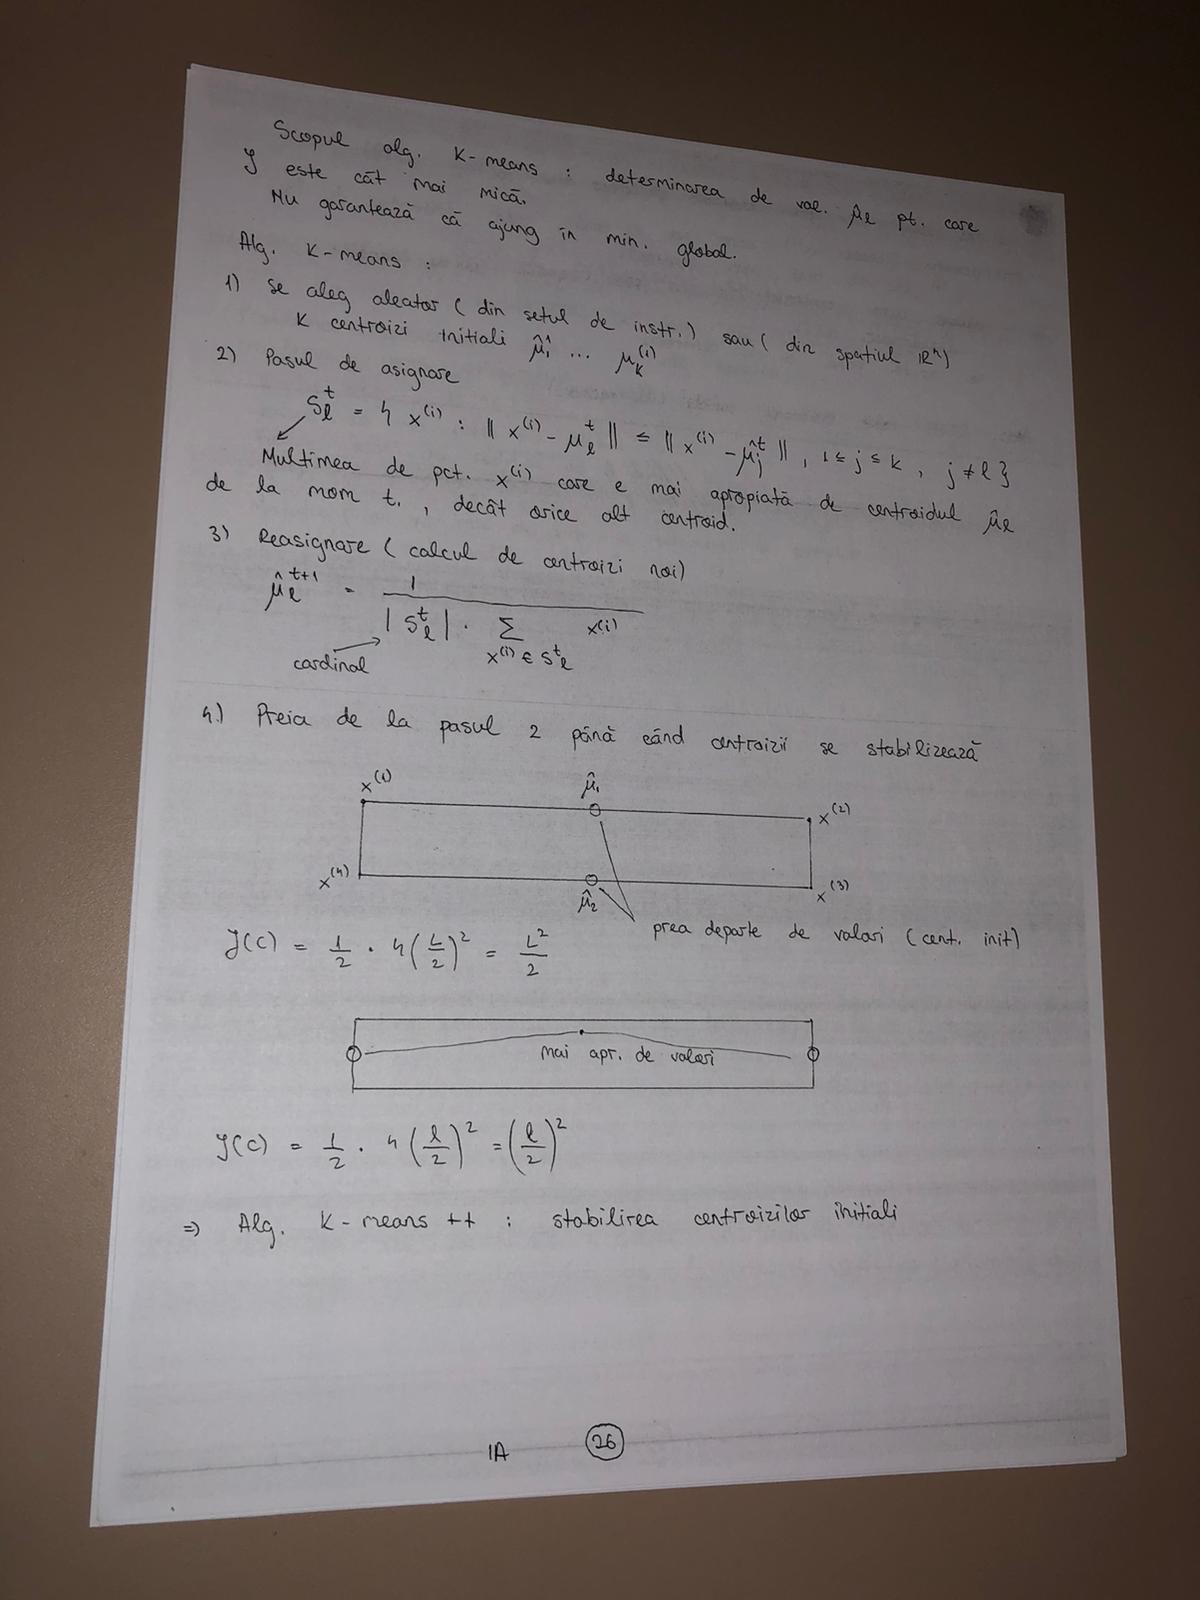 Scopul alg. K-means : determinarea de val. μ̂ℓ pt. care
J este cât mai mică.
Nu garantează că ajung în min. global.
Alg. K-means :
1) se aleg aleator (din setul de instr.) sau (din spațiul ℝⁿ)
K centroizi inițiali μ̂₁¹ ... μ_K^(1)
2) Pasul de asignare
S_ℓ^t = { x^(i) : || x^(i) - μ_ℓ^t || ≤ || x^(i) - μ̂_j^t ||, 1 ≤ j ≤ k, j ≠ ℓ }
Mulțimea de pct. x^(i) care e mai apropiată de centroidul μ̂ℓ
de la mom t., decât orice alt centroid.
3) Reasignare (calcul de centroizi noi)
μ̂_ℓ^(t+1) = 1 / |S_ℓ^t| · Σ x^(i)
x^(i) ∈ S_ℓ^t
cardinal
4.) Preia de la pasul 2 până când centroizii se stabilizează
x^(1) μ̂₁ x^(2)
x^(4) μ̂₂ x^(3)
prea departe de valori (cent. init)
J(C) = 1/2 · 4 (L/2)² = L²/2
mai apr. de valori
J(C) = 1/2 · 4 (ℓ/2)² = (ℓ/2)²
⇒ Alg. K-means ++ : stabilirea centroizilor inițiali
IA 26